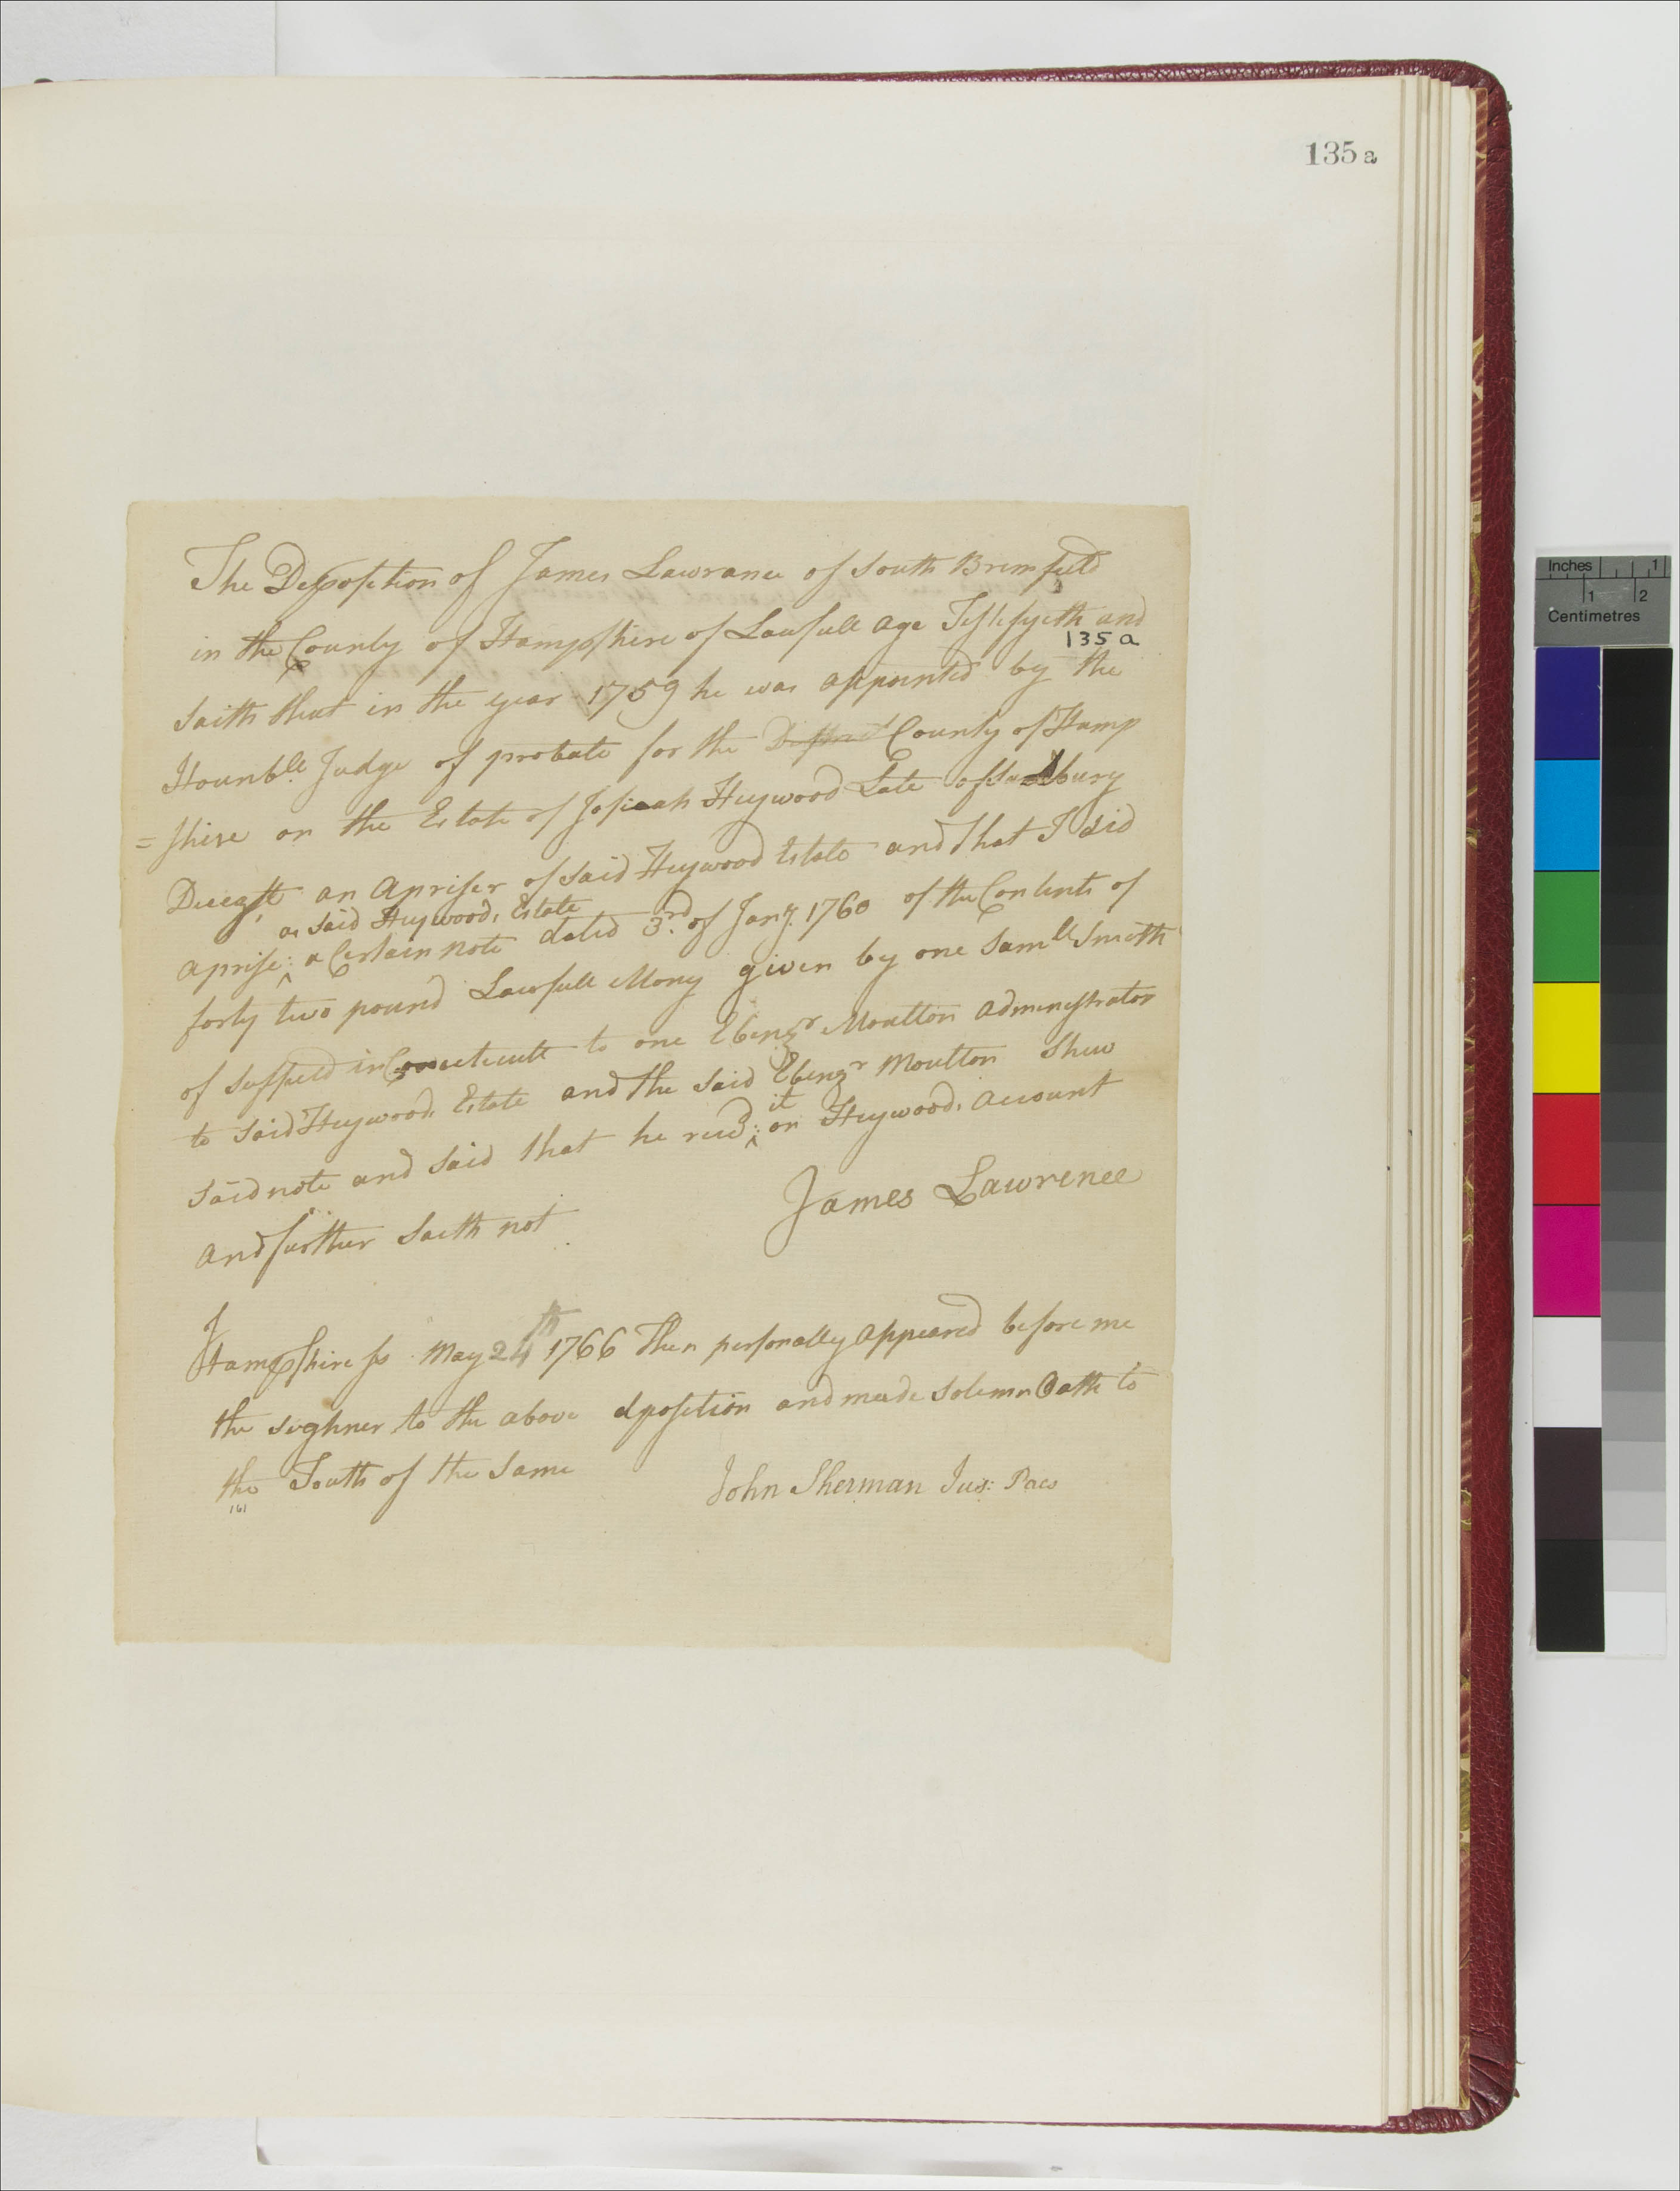 135 a
The Deposition of James Lawrance of South Brimfield
in the County of Hampshire of Lawfull age Testifyeth and
135 a
saith that in the year 1759 he was appointed by the
Hounble. Judge of probate for the District County of Hamp
=shire on the Estate of Josicah Heywood Late of Sudbury
Diceast an apriser of said Heywood Estate and that I did
as said Heywoods Estate
aprise : ^ a Certain note dated 3rd. of Jany. 1760 of the Contents of
forty two pound Lawfull Mony given by one Samll Smith
of Suffield in Conecticutt to one Ebenzr Moulton administrator
to said Heywoods Estate and the said Ebenzr Moulton Shew
it
said note and said that he recd : ^ on Heywoods account
and further saith not
James Lawrence
Hampshire ss May 24th 1766 Then personally appeared before me
the sighner to the above dposition and made solemn Oath to
the Touth of the same
John Sherman Jus: Paces
161
Inches 1
1 2
Centimetres